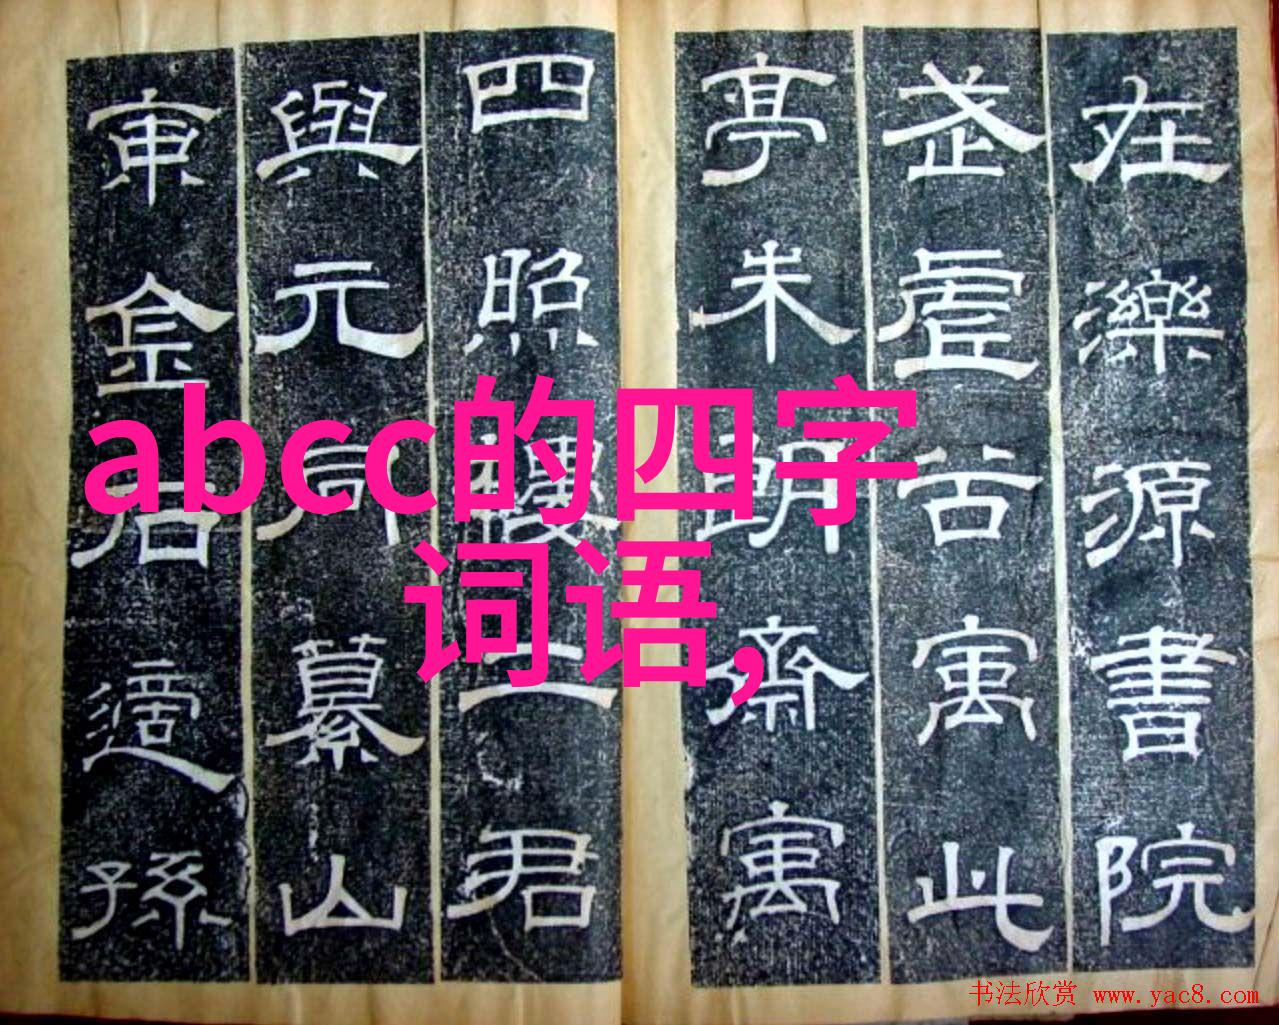 在濼源書院
武虛谷寓此
亭朱朗齋寓
四照樓二君
與元同纂山
東金石適孫
abcc的四字
词语,
书法欣赏 www.yac8.com